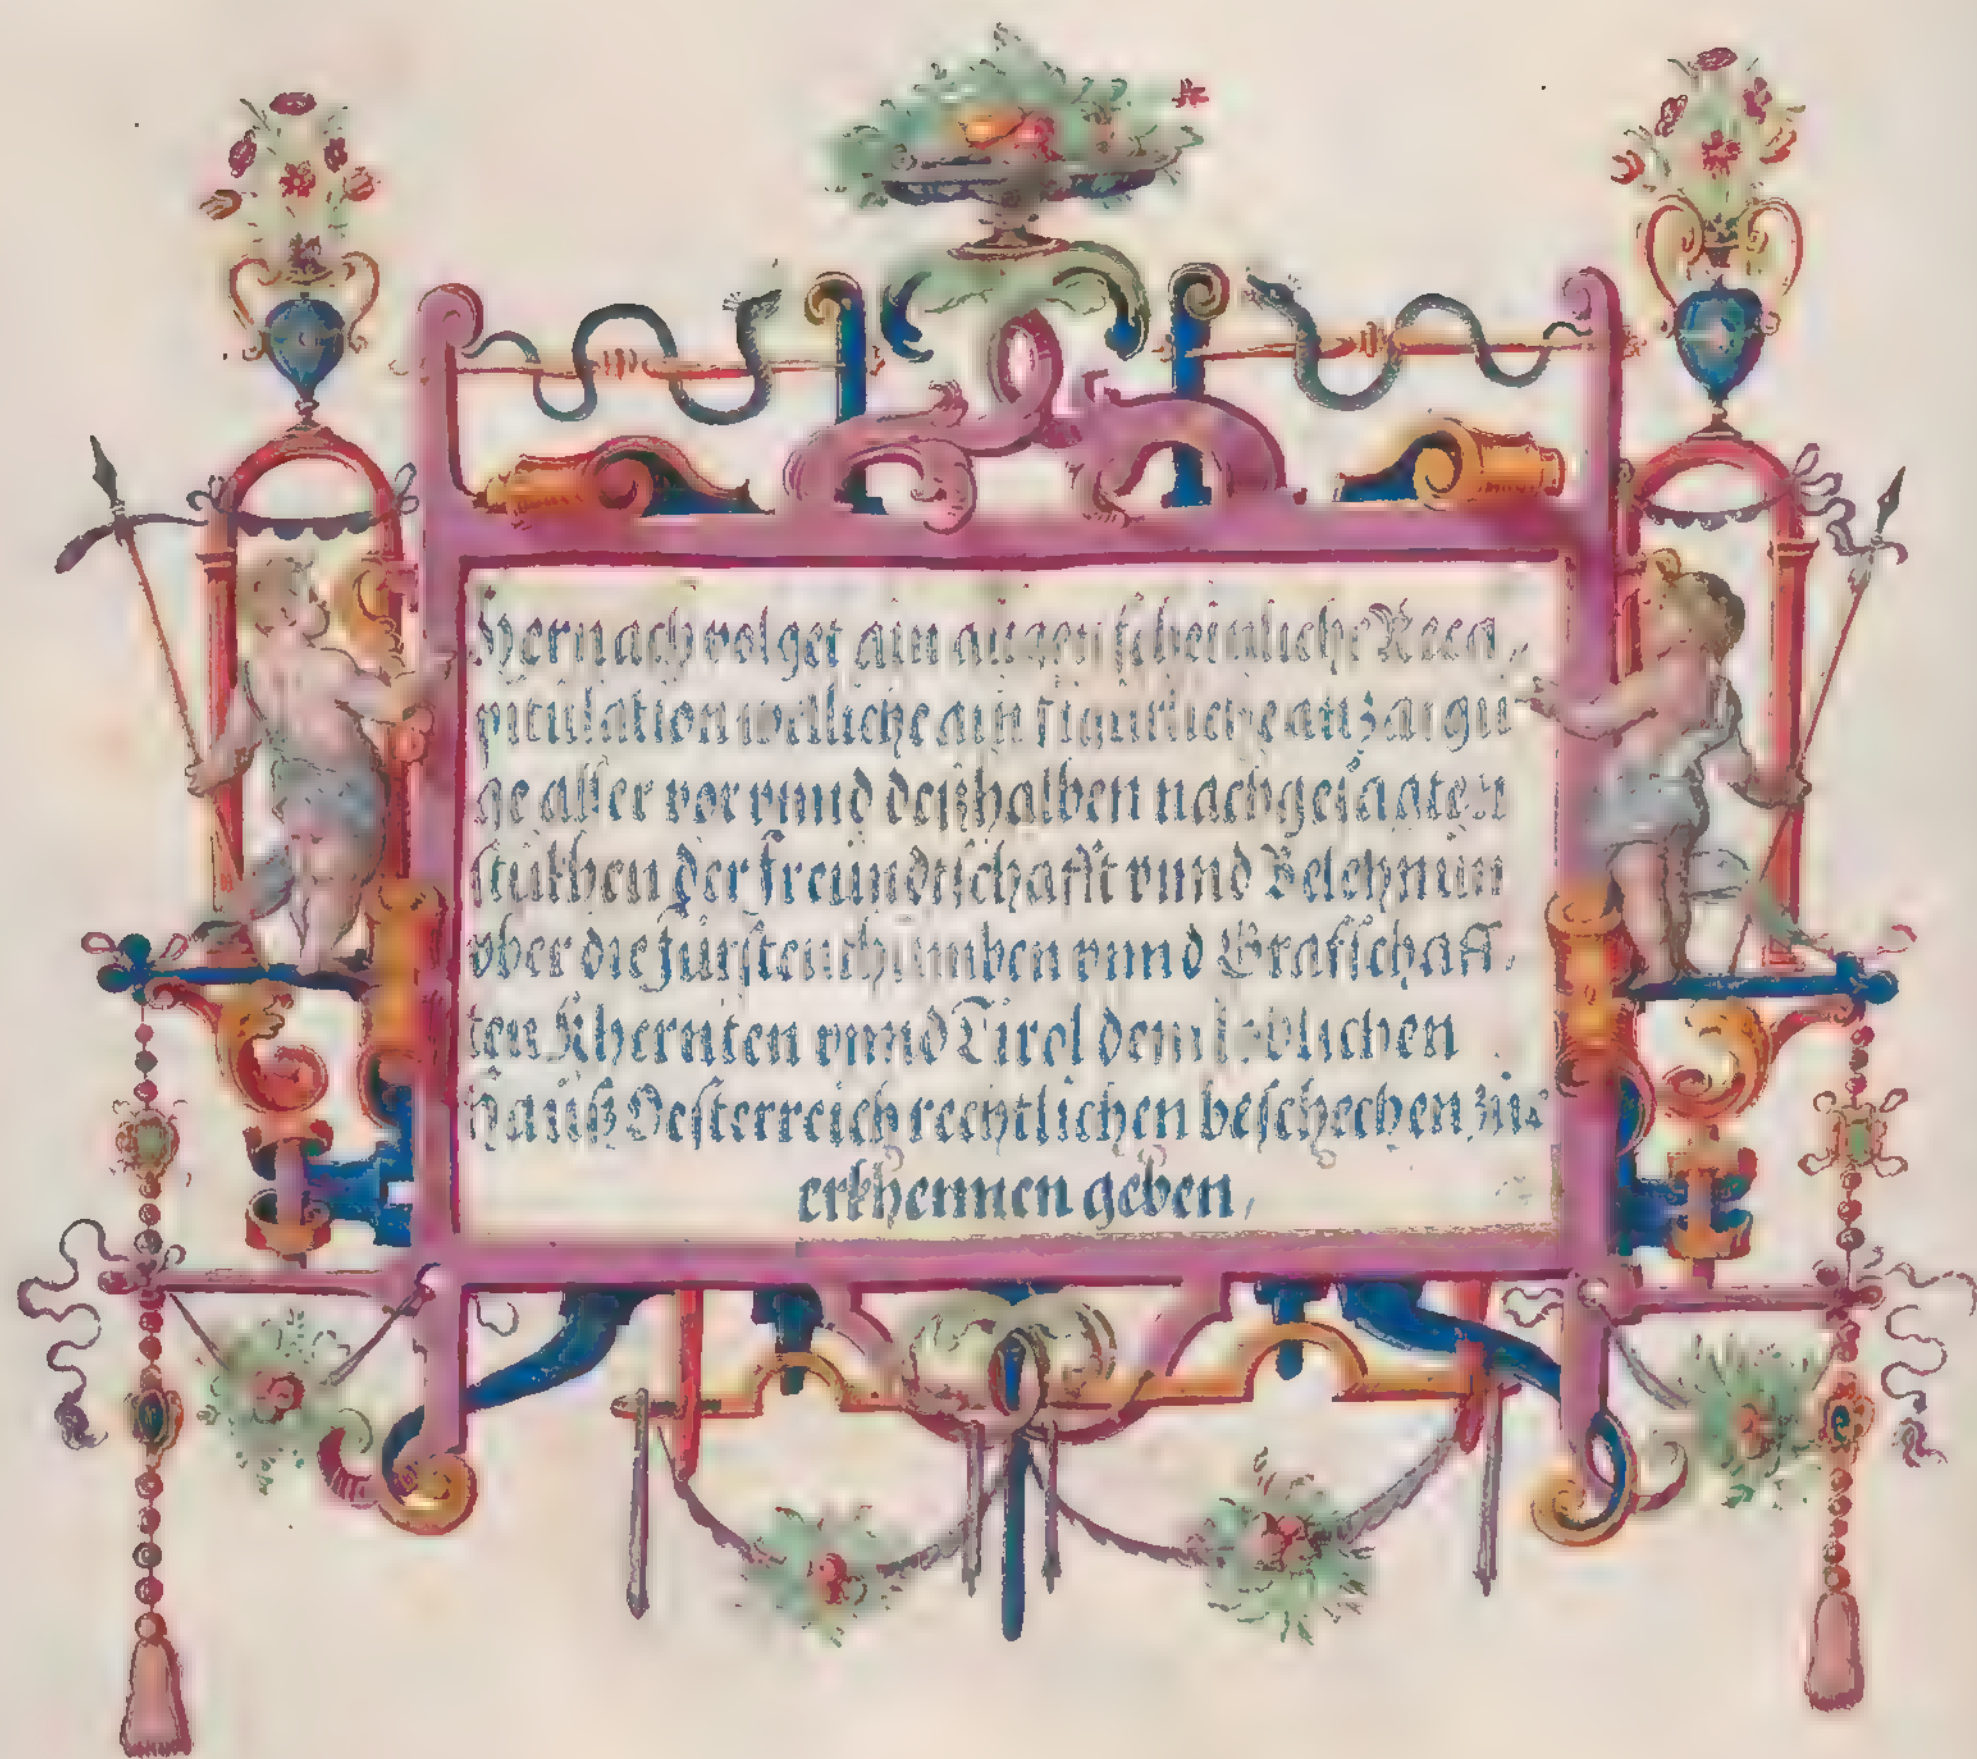 Hernach volget ain augenscheinliche Reca,
pitulation welliche ain figurliche anzaigu
ge aller vor vnnd deßhalben nachgesagten
stukhen der freundtschafft vnnd Belehnun
vber die fürstenthumben vnnd Graffschaff,
ten Khernten vnnd Tirol dem loblichen
hauß Oesterreich rechtlichen beschechen zu
erkhennen geben,